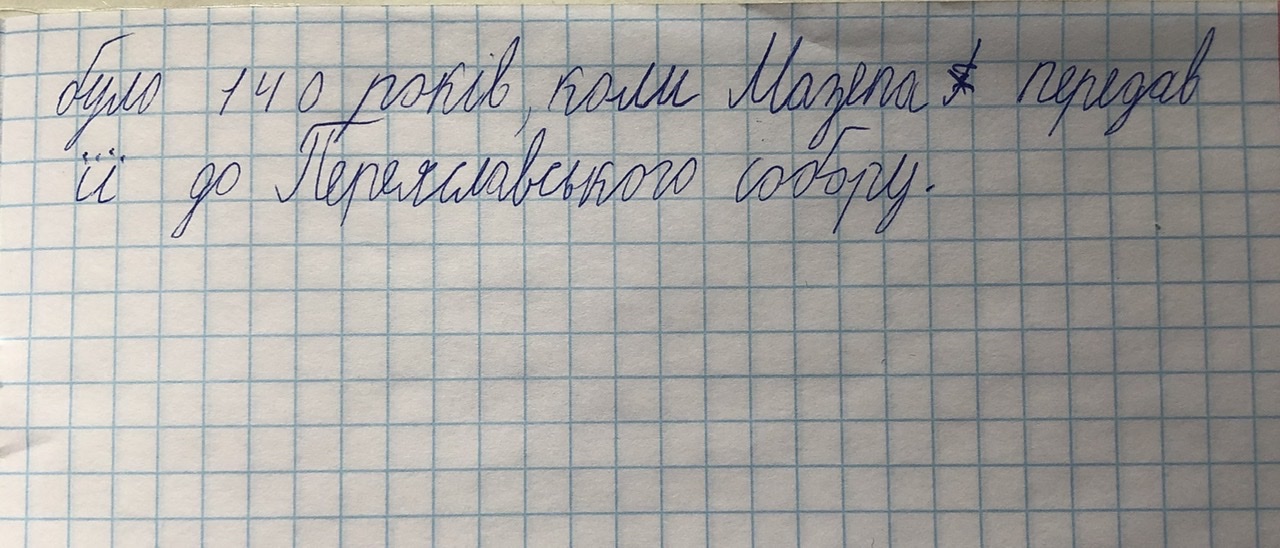 було 140 років, коли Мазепа передав
її до Переяславського собору.